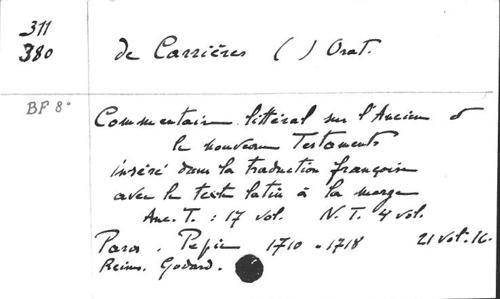 311
380 de Carrières ( ) Orat.
BF 8°
Commentaire littéral sur l'Ancien et
le nouveau Testaments
inséré dans la traduction françoise
avec le texte latin à la marge
Anc. T. : 17 vol. N. T. 4 vol.
Paris. Pepie 1710 - 1718 21 vol. 16.
Reims. Godard.